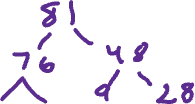 81
76 48
9 28